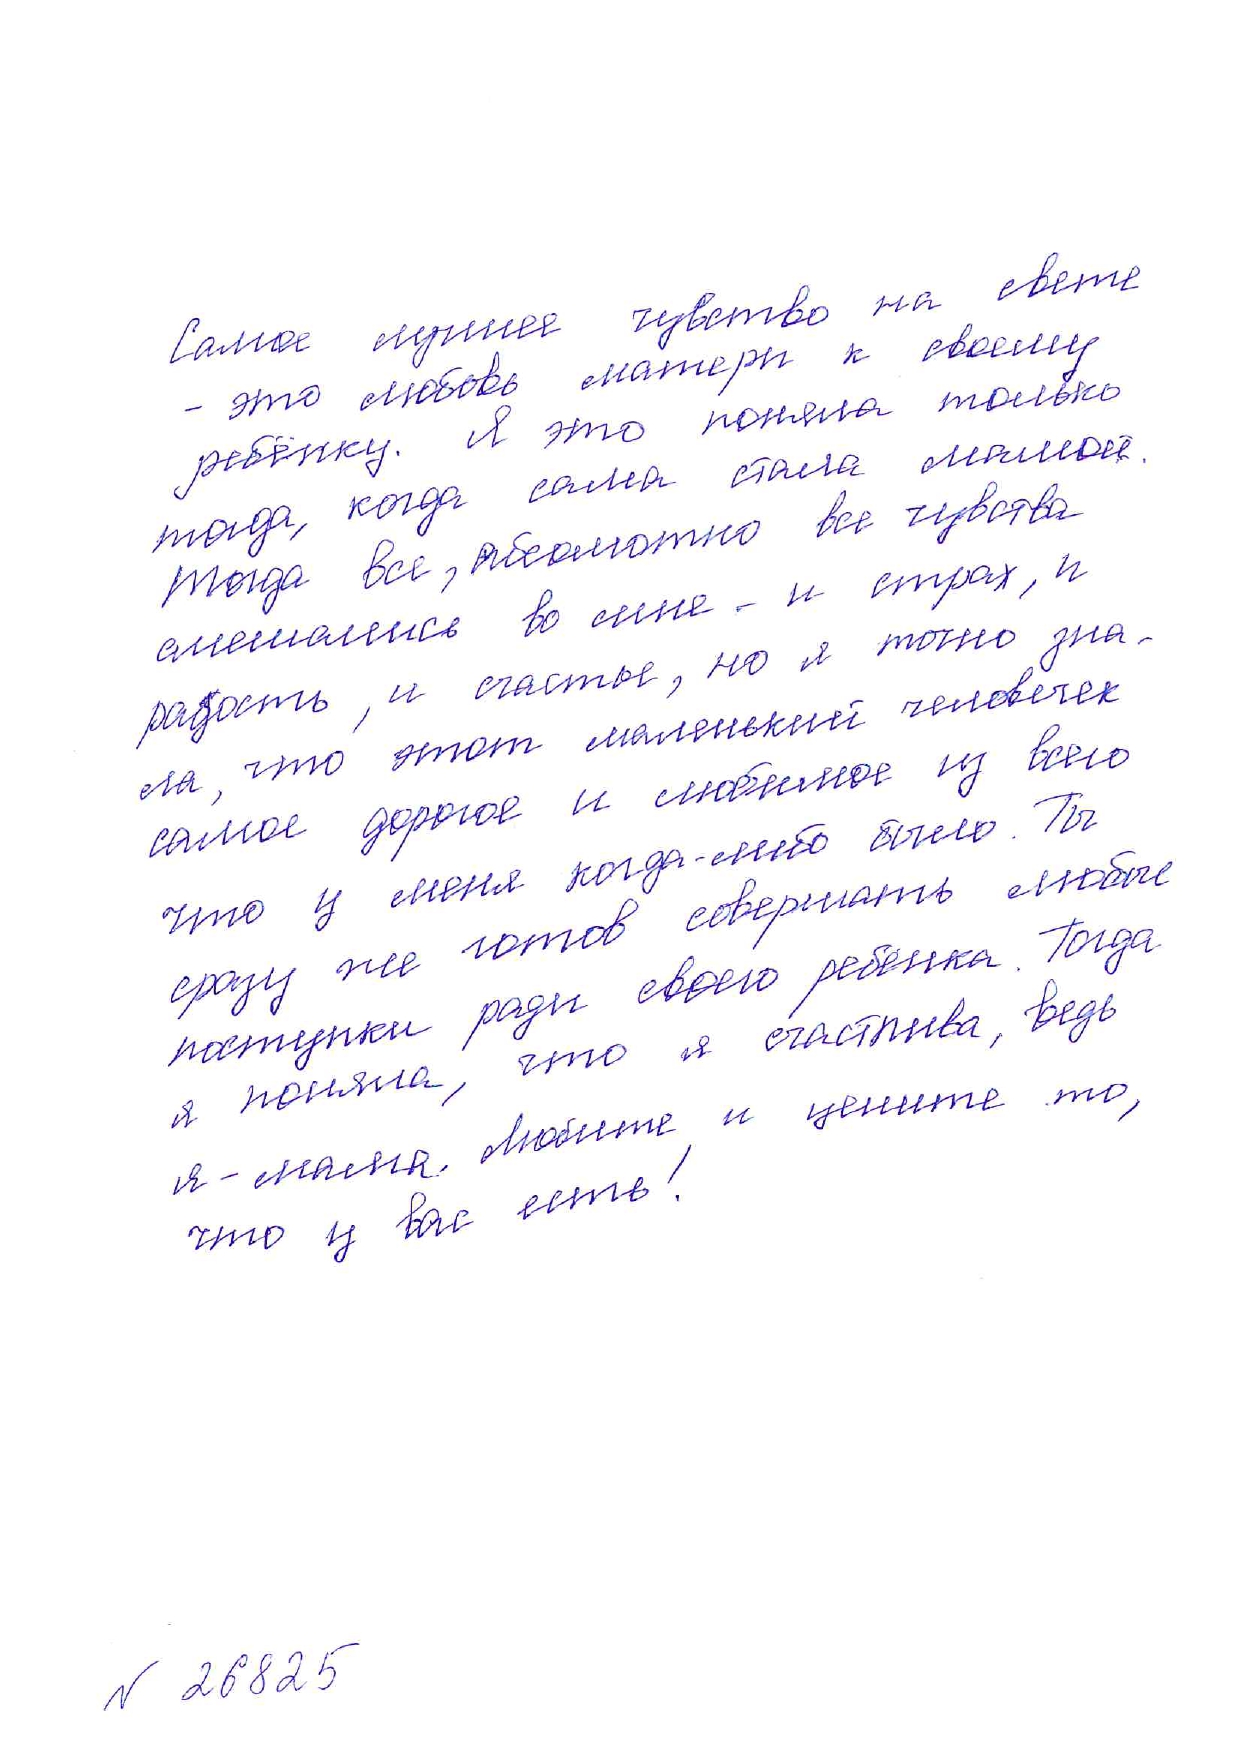 Самое лучшее чувство на свете
- это любовь матери к своему
ребёнку. Я это поняла только
тогда, когда сама стала мамой.
Тогда все, абсолютно все чувства
смешались во мне - и страх, и
радость, и счастье, но я точно зна-
ла, что этот маленький человечек
самое дорогое и любимое из всего
что у меня когда-либо было. Ты
сразу же готов совершать любые
поступки ради своего ребёнка. Тогда
я поняла, что я счастлива, ведь
я - мама. Любите и цените то,
что у вас есть!
N 26825